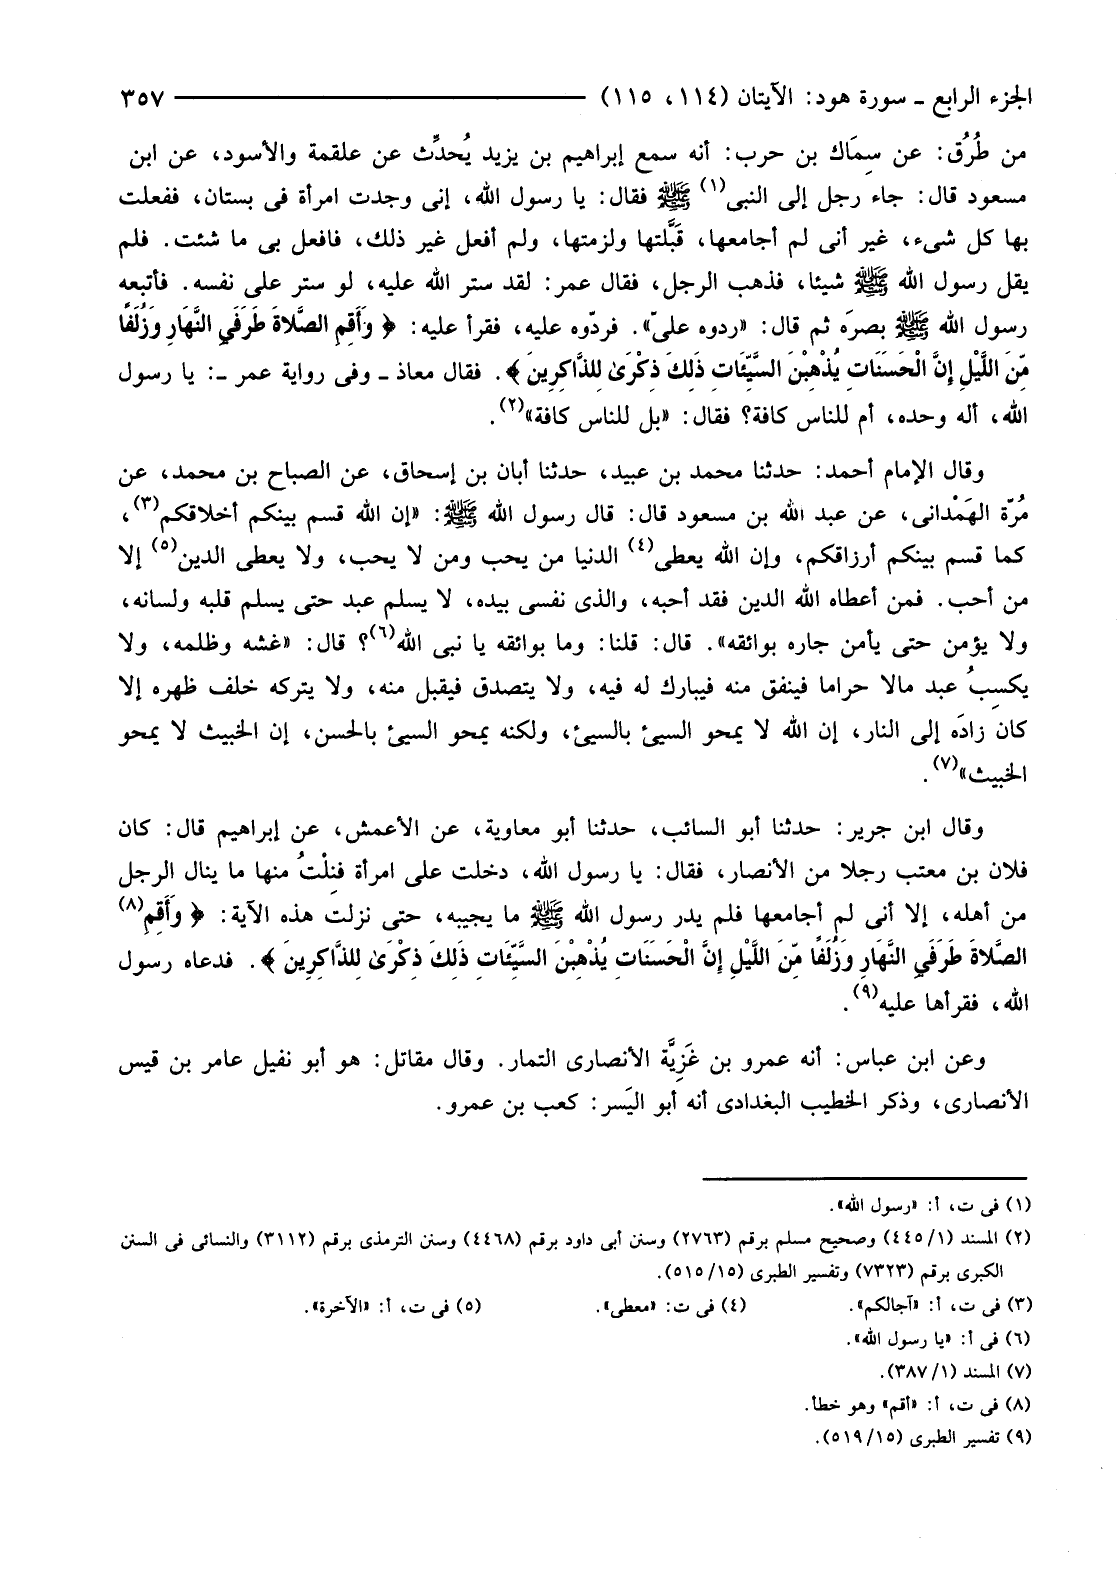 الجزء الرابع ـ سورة هود: الآيتان (١١٤، ١١٥) ٣٥٧
من طُرُق: عن سِمَاك بن حرب: أنه سمع إبراهيم بن يزيد يُحدِّث عن علقمة والأسود، عن ابن
مسعود قال: جاء رجل إلى النبى(١) ﷺ فقال: يا رسول الله، إنى وجدت امرأة فى بستان، ففعلت
بها كل شىء، غير أنى لم أجامعها، قَبَّلتها ولزمتها، ولم أفعل غير ذلك، فافعل بى ما شئت. فلم
يقل رسول الله ﷺ شيئا، فذهب الرجل، فقال عمر: لقد ستر الله عليه، لو ستر على نفسه. فأتبعه
رسول الله ﷺ بصرَه ثم قال: «ردوه علىّ». فردّوه عليه، فقرأ عليه: ﴿ وَأَقِمِ الصَّلاةَ طَرَفَيِ النَّهَارِ وَزُلَفًا
مِّنَ اللَّيْلِ إِنَّ الْحَسَنَاتِ يُذْهِبْنَ السَّيِّئَاتِ ذَلِكَ ذِكْرَىٰ لِلذَّاكِرِينَ ﴾. فقال معاذ ـ وفى رواية عمر ـ: يا رسول
الله، أله وحده، أم للناس كافة؟ فقال: «بل للناس كافة»(٢).
وقال الإمام أحمد: حدثنا محمد بن عبيد، حدثنا أبان بن إسحاق، عن الصباح بن محمد، عن
مُرّة الهَمْدانى، عن عبد الله بن مسعود قال: قال رسول الله ﷺ: «إن الله قسم بينكم أخلاقكم(٣)،
كما قسم بينكم أرزاقكم، وإن الله يعطى(٤) الدنيا من يحب ومن لا يحب، ولا يعطى الدين(٥) إلا
من أحب. فمن أعطاه الله الدين فقد أحبه، والذى نفسى بيده، لا يسلم عبد حتى يسلم قلبه ولسانه،
ولا يؤمن حتى يأمن جاره بوائقه». قال: قلنا: وما بوائقه يا نبى الله(٦)؟ قال: «غشه وظلمه، ولا
يكسِبُ عبد مالا حراما فينفق منه فيبارك له فيه، ولا يتصدق فيقبل منه، ولا يتركه خلف ظهره إلا
كان زادَه إلى النار، إن الله لا يمحو السيئ بالسيئ، ولكنه يمحو السيئ بالحسن، إن الخبيث لا يمحو
الخبيث»(٧).
وقال ابن جرير: حدثنا أبو السائب، حدثنا أبو معاوية، عن الأعمش، عن إبراهيم قال: كان
فلان بن معتب رجلا من الأنصار، فقال: يا رسول الله، دخلت على امرأة فنِلْتُ منها ما ينال الرجل
من أهله، إلا أنى لم أجامعها فلم يدر رسول الله ﷺ ما يجيبه، حتى نزلت هذه الآية: ﴿ وَأَقِمِ(٨)
الصَّلاةَ طَرَفَيِ النَّهَارِ وَزُلَفًا مِّنَ اللَّيْلِ إِنَّ الْحَسَنَاتِ يُذْهِبْنَ السَّيِّئَاتِ ذَلِكَ ذِكْرَىٰ لِلذَّاكِرِينَ ﴾. فدعاه رسول
الله، فقرأها عليه(٩).
وعن ابن عباس: أنه عمرو بن غَزِيَّة الأنصارى التمار. وقال مقاتل: هو أبو نفيل عامر بن قيس
الأنصارى، وذكر الخطيب البغدادى أنه أبو اليَسر: كعب بن عمرو.
(١) فى ت، أ: «رسول الله».
(٢) المسند (٤٤٥/١) وصحيح مسلم برقم (٢٧٦٣) وسنن أبى داود برقم (٤٤٦٨) وسنن الترمذى برقم (٣١١٢) والنسائى فى السنن
الكبرى برقم (٧٣٢٣) وتفسير الطبرى (٥١٥/١٥).
(٣) فى ت، أ: «آجالكم». (٤) فى ت: «معطى». (٥) فى ت، أ: «الآخرة».
(٦) فى أ: «يا رسول الله».
(٧) المسند (٣٨٧/١).
(٨) فى ت، أ: «أقم» وهو خطأ.
(٩) تفسير الطبرى (٥١٩/١٥).